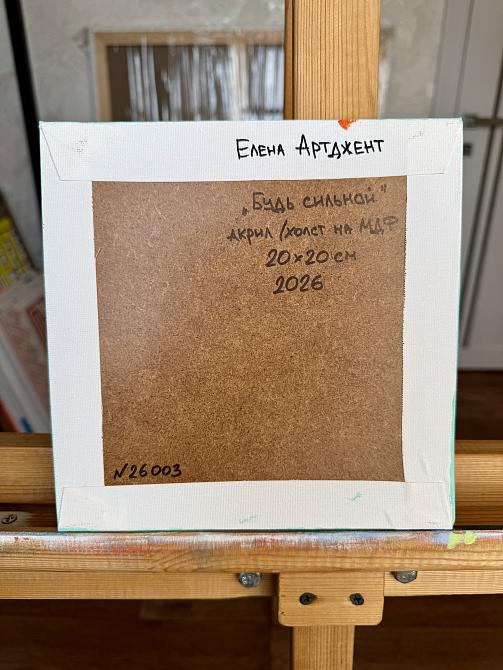 Елена Артджент
„Будь сильной"
Акрил/холст на МДФ
20×20 см
2026
N26003